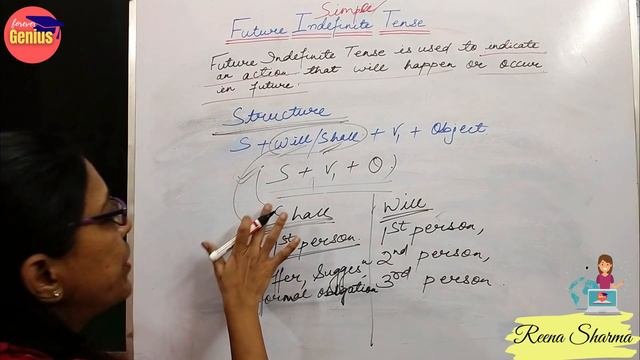 forever
Genius
Simple
Future Indefinite Tense
Future Indefinite Tense is used to indicate
an action that will happen or occur
in future.
Structure
S + Will/Shall + V1 + Object
S + V1 + O)
Shall
1st person
Offer, Sugges n
formal obligation
Will
1st person,
2nd person,
3rd person.
Reena Sharma